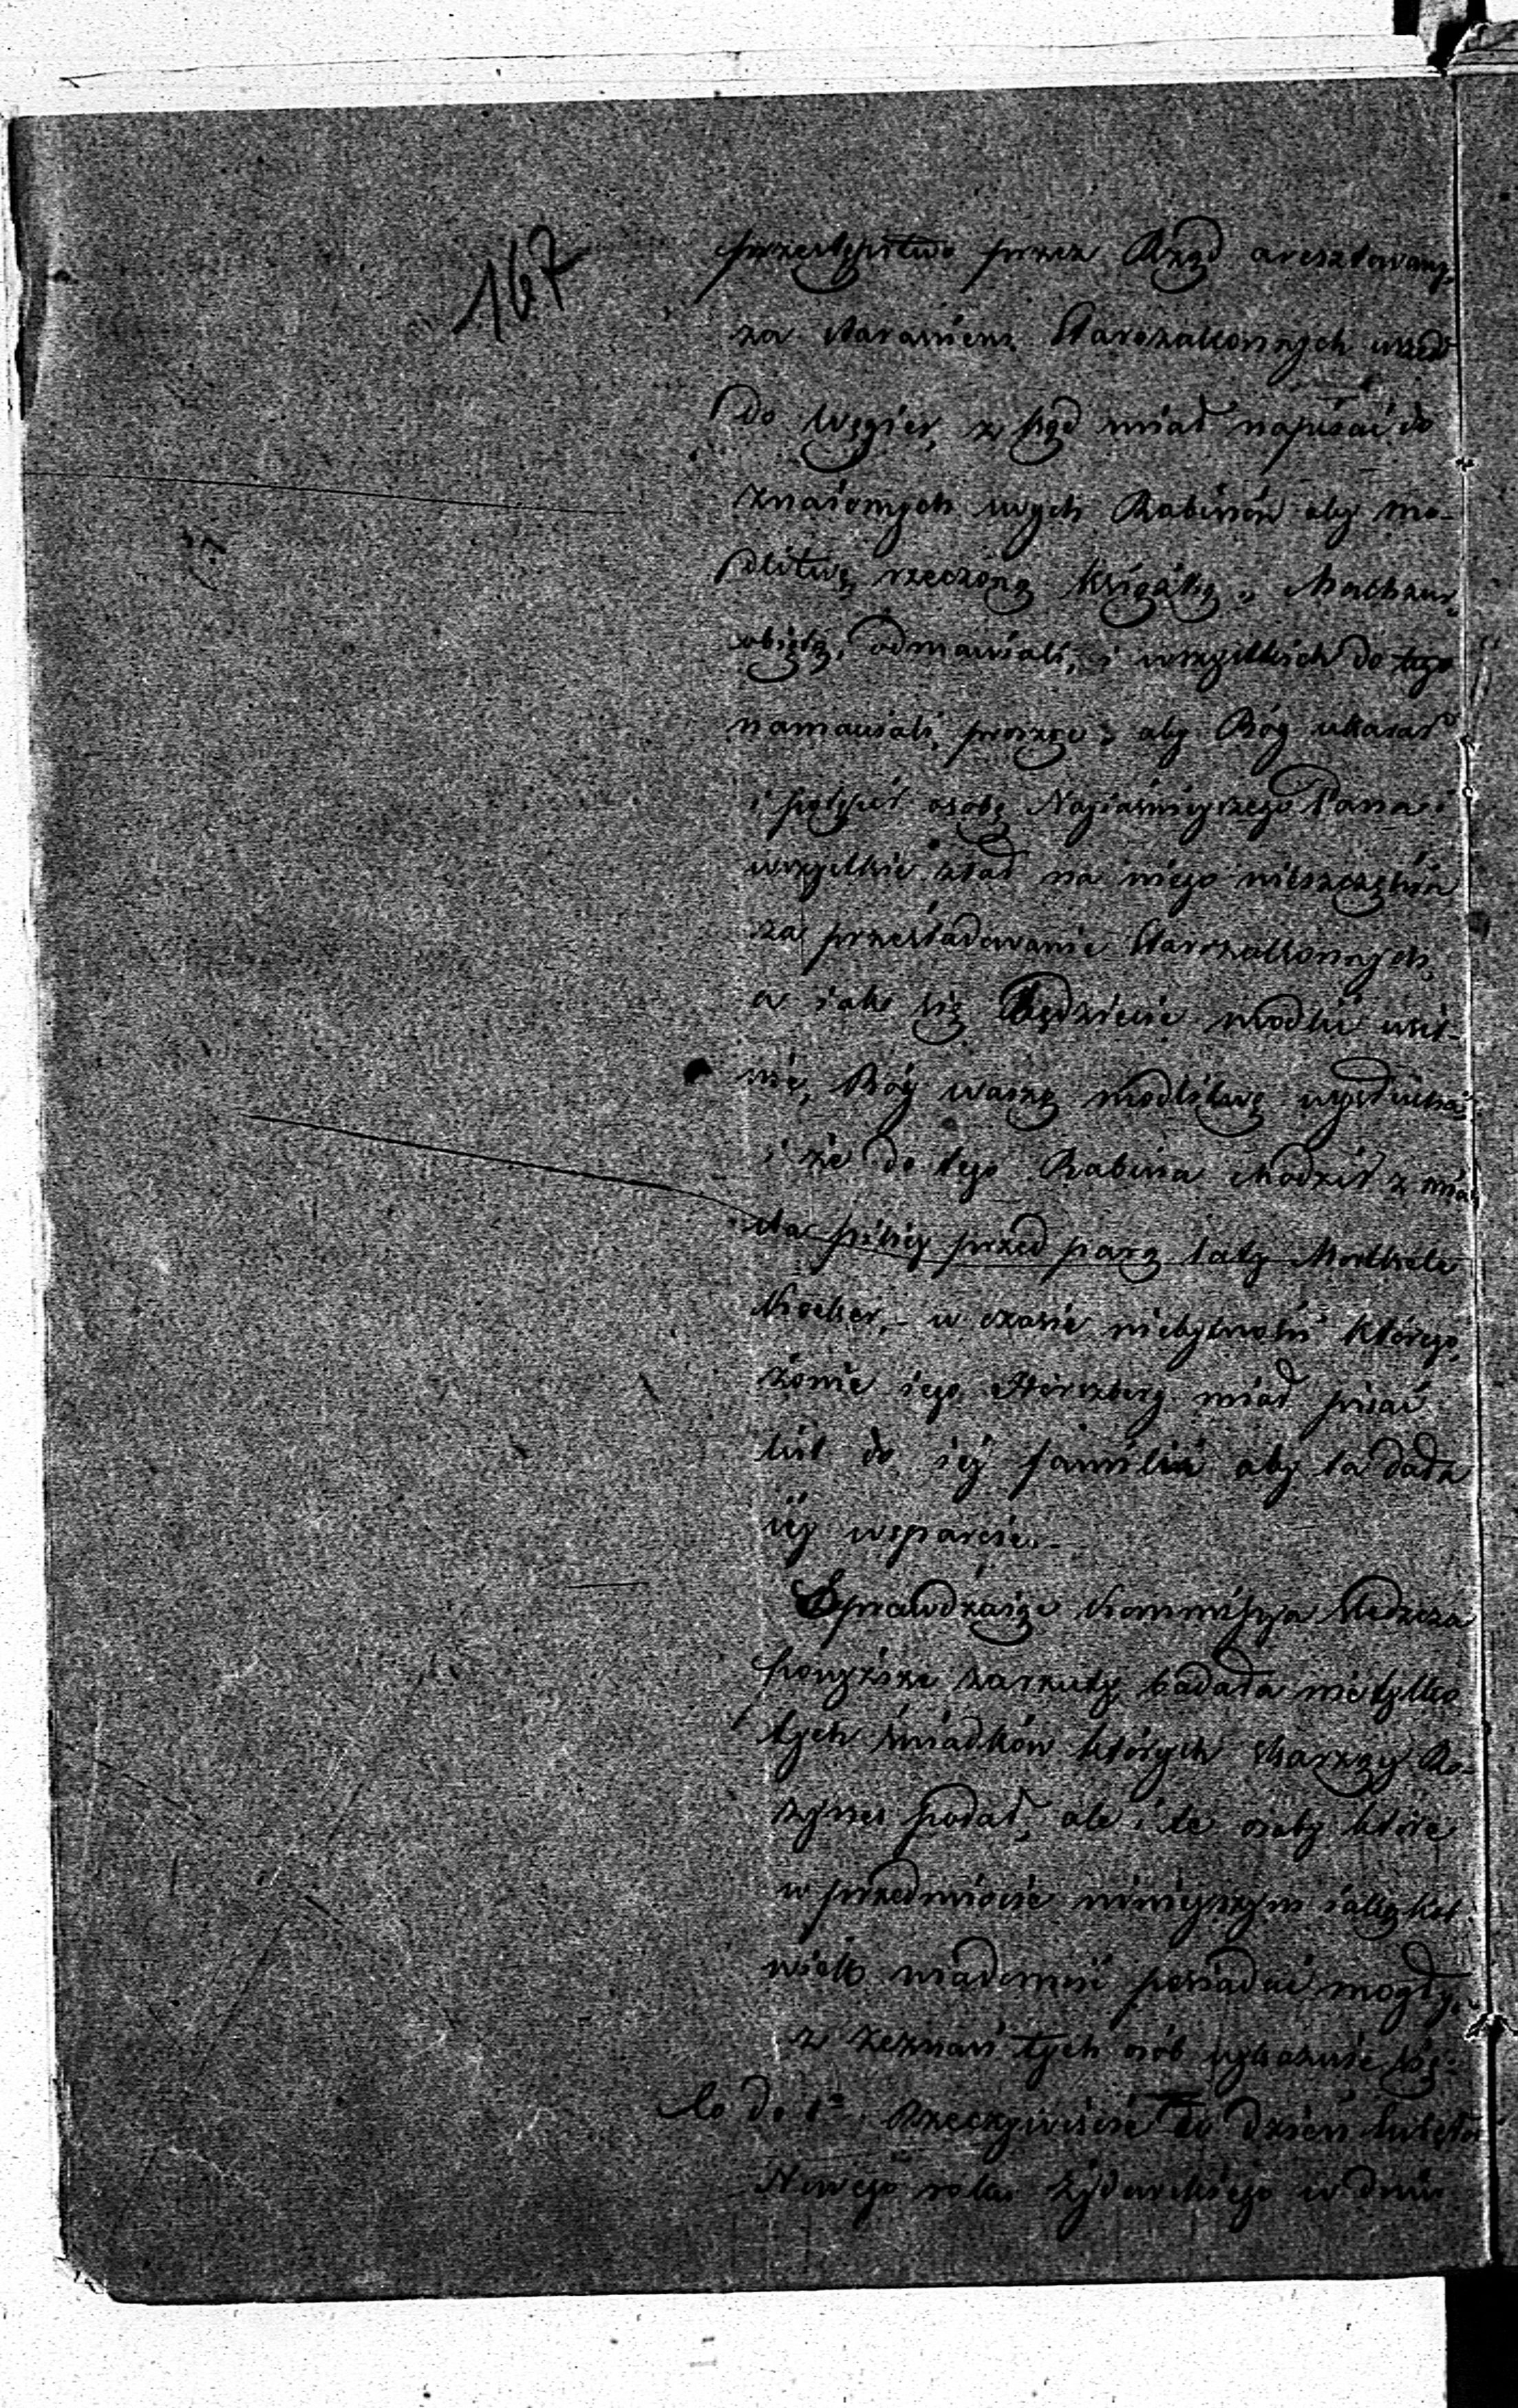 167
przestępstwo przez Rząd aresztowany,
za staraniem Starozakonnych uszedł
do Węgier, z kąd miał napisać do
znaiomych swych Rabinów aby mo-
dlitwę rzeczoną książką „Machzur„
obiętą, odmawiali, i wszystkich do tego
namawiali, prosząc, aby Bóg ukarał
i potępił osobę Nayiaśnieyszego Pana i
wszystkie zlał na niego nieszczęścia
za prześladowanie Starozakonnych,
a iak się będziecie modlić usil-
nie, Bóg waszę modlitwę wysłucha,
i że do tego Rabina chodził z mia-
sta Pilicy przed parą laty Mortkele
w czasie niebytności którego,
żonie iego Herszberg miał pisać
list do iéy familii aby ta dała
iéy wsparcie.-
Sprawdzaiąc Kommissya Śledcza
powyższe zarzuty, badała nie tylko
tych świadków których skarżący Ro-
zynes podał, ale i te osoby które
w przedmiocie ninieyszym iakążkol-
wiek wiadomość posiadać mogły,
z zeznań tych osób wykazuie się:
Co do 1º Rzeczywiście w dzień Święta
Nowego roku żydowskiego w dniu